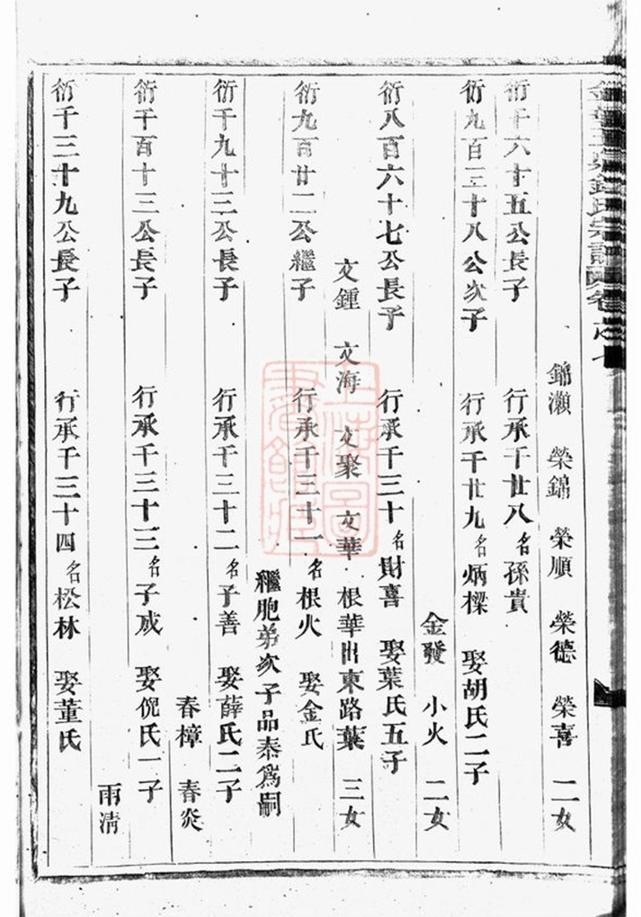 氏宗譜 卷之七
錦瀨 榮錦 榮順 榮德 榮喜 二女
衍千六十五公長子 行承千廿八名孫貴
衍九百三十八公次子 行承千廿九名炳樑 娶胡氏二子
金發 小火 二女
衍八百六十七公長子 行承千三十名財喜 娶葉氏五子
文鍾 文海 文聚 文華 根華出東路葉 三女
衍九百廿二公繼子 行承千三十一名根火 娶金氏
繼胞弟次子品泰爲嗣
衍千九十三公長子 行承千三十二名子善 娶薛氏二子
春樟 春炎
衍千百十三公長子 行承千三十三名子成 娶倪氏一子
雨清
衍千三十九公長子 行承千三十四名松林 娶董氏
上海圖書館藏